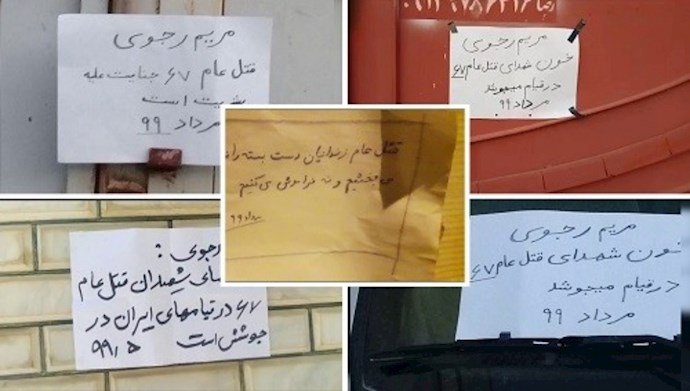 مریم رجوی
قتل عام ۶۷ جنایت علیه
بشریت است
مرداد ۹۹
مریم رجوی
خون شهدای قتل عام ۶۷
در قیام میجوشد
مرداد ۹۹
قتل عام زندانیان دست بسته را نه
می بخشیم و نه فراموش می کنیم
مرداد ۹۹
رجوی :
های شهیدان قتل عام
۶۷ در قیامهای ایران در
جوشش است ۹۹/۵
مریم رجوی
خون شهدای قتل عام ۶۷
در قیام میجوشد
مرداد ۹۹